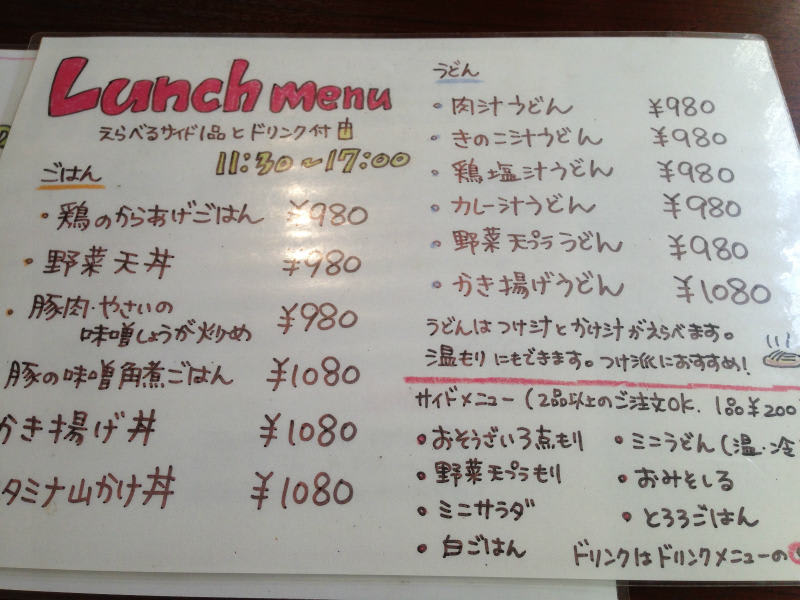 Lunch menu
えらべるサイド1品とドリンク付
11:30~17:00
ごはん
・鶏のからあげごはん ¥980
・野菜天丼 ¥980
・豚肉・やさいの
味噌しょうが炒め ¥980
豚の味噌角煮ごはん ¥1080
かき揚げ丼 ¥1080
タミナ山かけ丼 ¥1080
うどん
・肉汁うどん ¥980
・きのこ汁うどん ¥980
・鶏塩汁うどん ¥980
・カレー汁うどん ¥980
・野菜天プラうどん ¥980
・かき揚げうどん ¥1080
うどんはつけ汁とかけ汁がえらべます。
温もりにもできます。つけ派におすすめ!
サイドメニュー(2品以上のご注文OK. 1品¥200
・おそうざい3点もり
・野菜天プラもり
・ミニサラダ
・白ごはん
・ミニうどん(温・冷
・おみそしる
・とろろごはん
ドリンクはドリンクメニューの